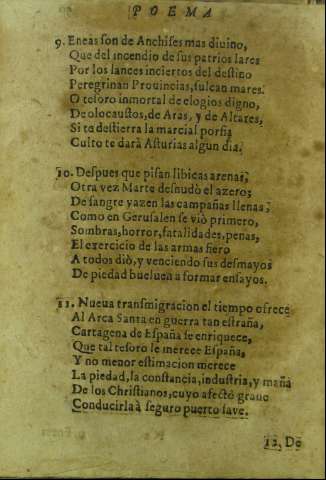 POEMA
9. Eneas son de Anchises mas diuino,
Que del incendio de sus patrios lares
Por los lances inciertos del destino
Peregrinan Prouincias, sulcan mares.
O tesoro inmortal de elogios digno,
De olocaustos, de Aras, y de Altares,
Si te destierra la marcial porfia
Culto te darà Asturias algun dia.
10. Despues que pisan libicas arenas,
Otra vez Marte desnudò el azero;
De sangre yazen las campañas llenas;
Como en Gerusalen se viò primero,
Sombras, horror, fatalidades, penas,
El exercicio de las armas fiero
A todos diò, y venciendo sus desmayos
De piedad bueluen a formar ensayos.
11. Nueua transmigracion el tiempo ofrece
Al Arca Santa en guerra tan estraña,
Cartagena de España se enriquece,
Que tal tesoro le merece España,
Y no menor estimacion merece
La piedad, la constancia, industria, y maña
De los Christianos, cuyo afectò graue
Conducirla à seguro puerto save.
12. De